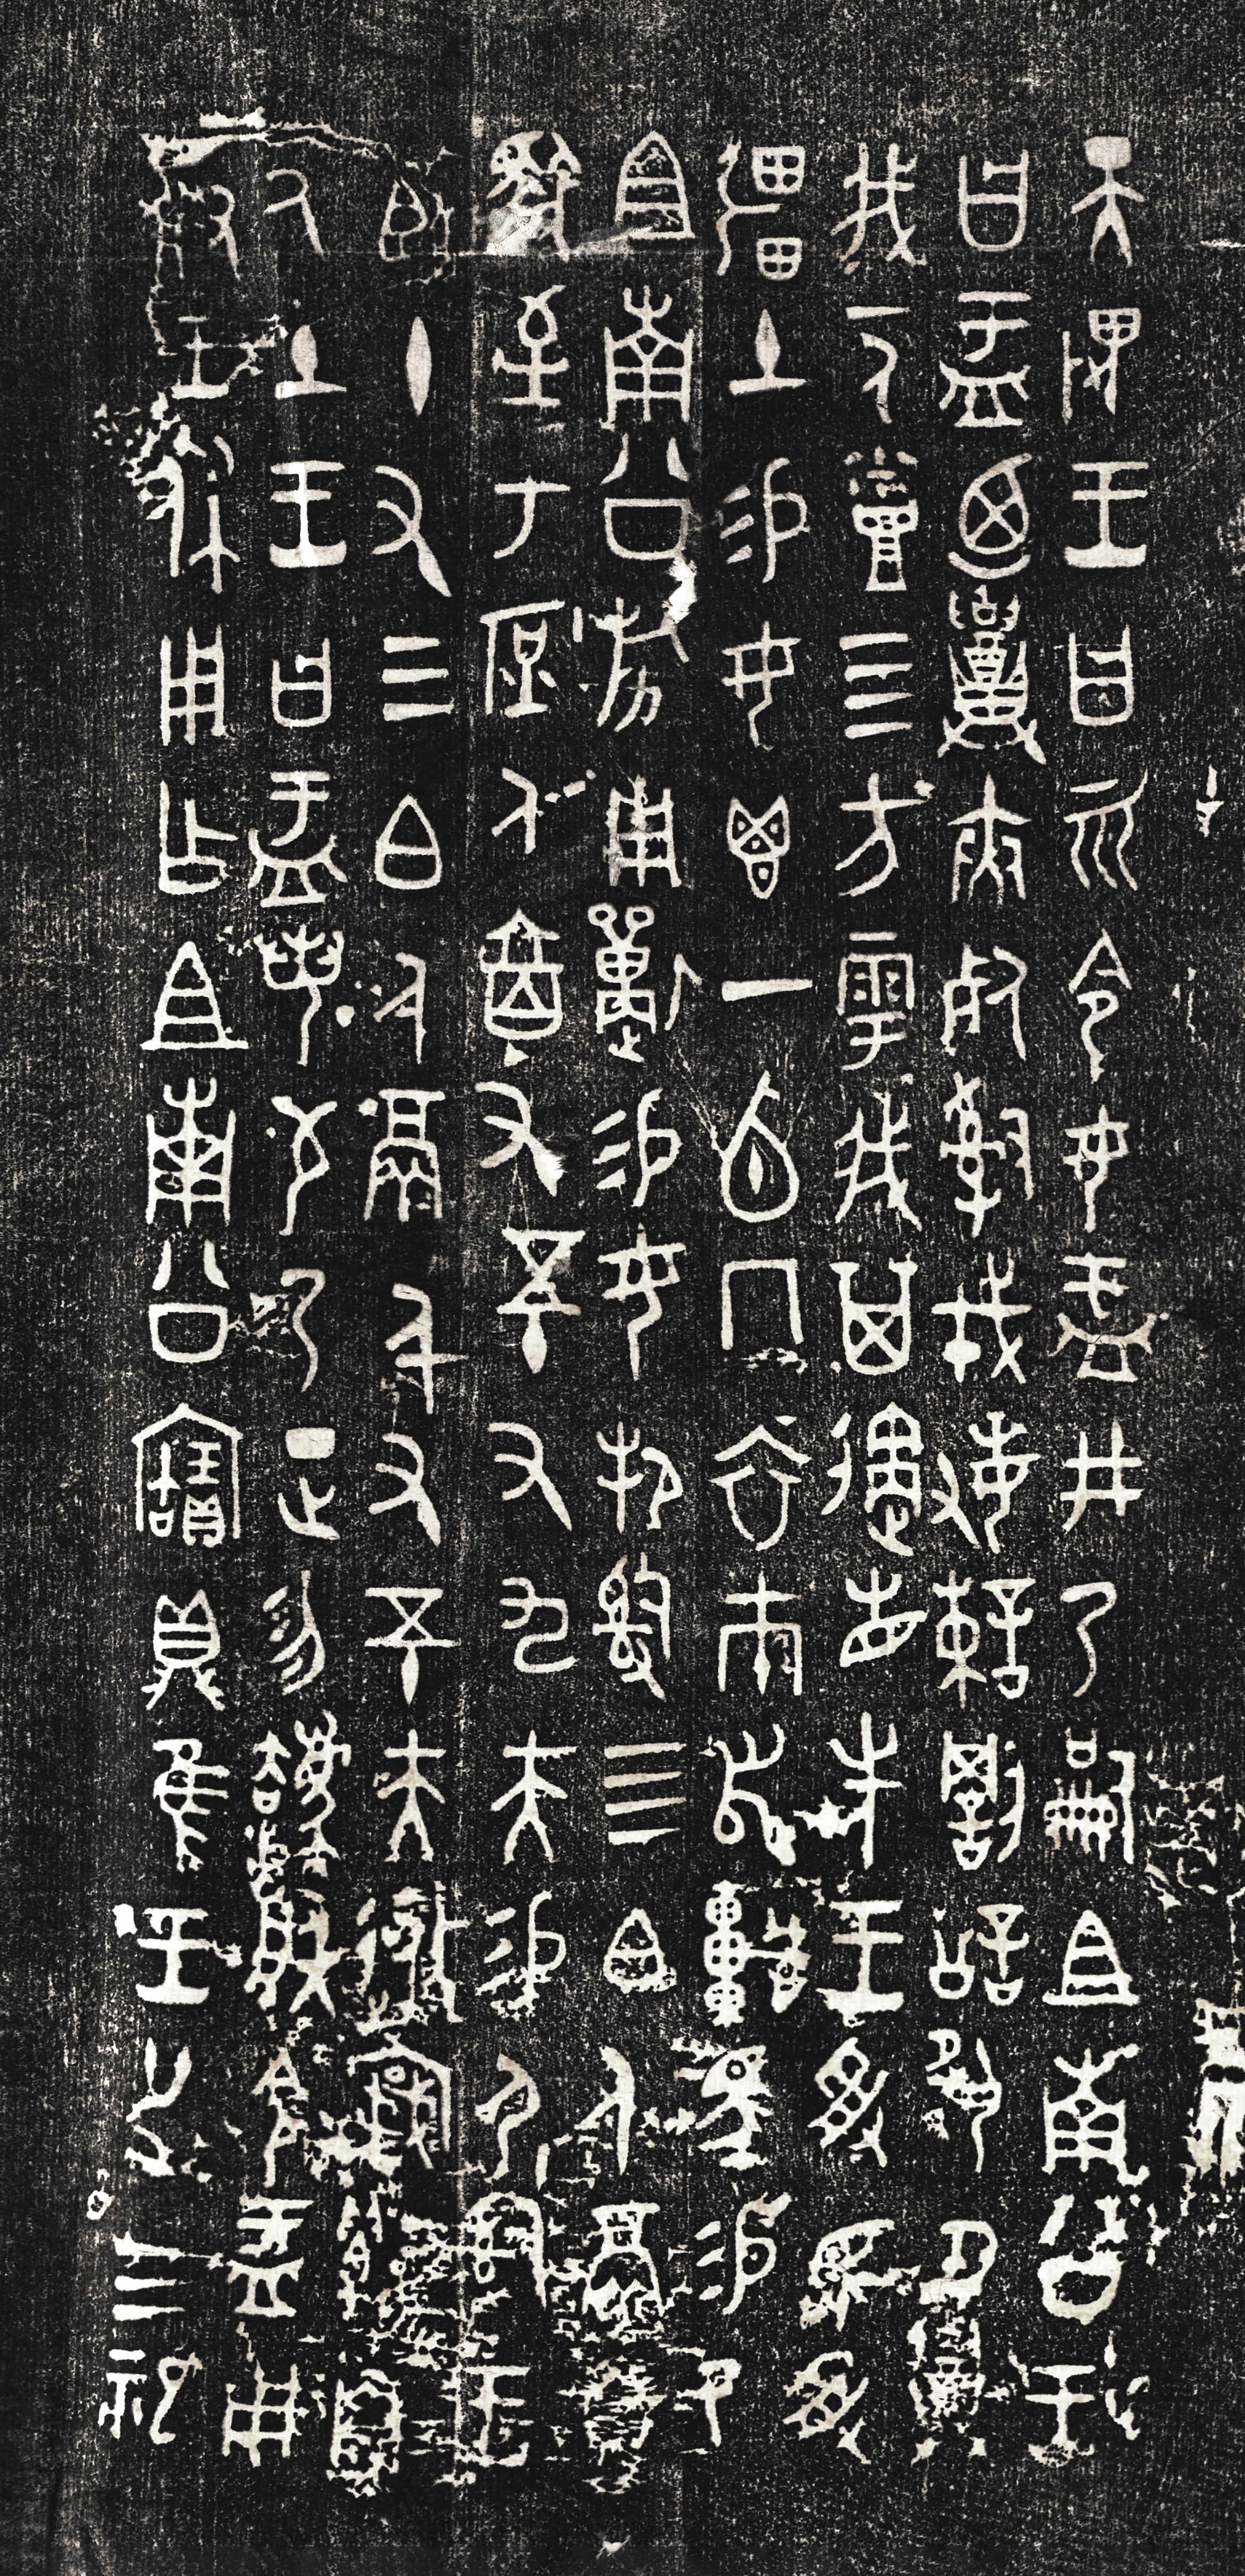 天畏王曰𠕋令女盂井乃嗣且南公王
曰盂廼召夾死𤔲戎敏諫罰訟夙夕召
我一人烝四方雩我其遹省先王受民受
疆土易女鬯一卣冂衣巿舄車馬易乃
且南公旂用遘易女邦𤔲四白人鬲自
馭至于庶人六百又五十又九夫易尸𤔲王
臣十又三白人鬲千又五十夫自
厥土王曰盂若芍乃正勿灋朕令盂用
對王休用乍且南公寶鼎隹王廿又三祀